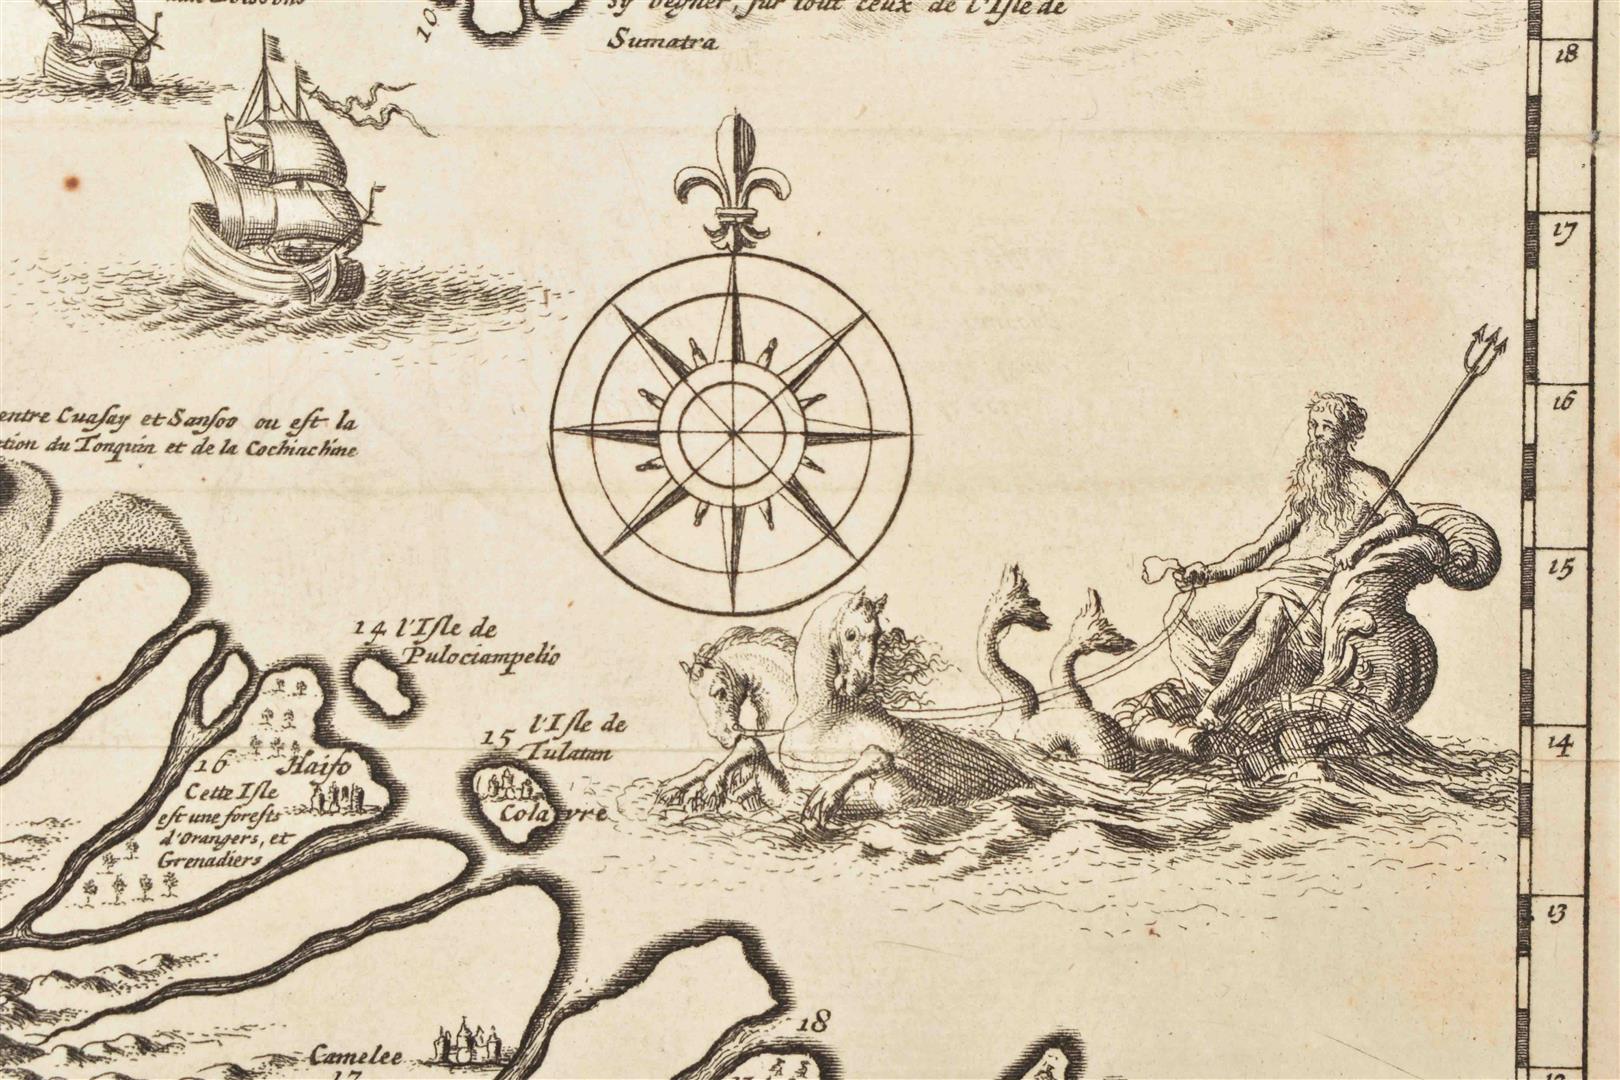 10
sy vegner, sur tout ceux de l'Isle de
Sumatra
18
17
entre Cuasay et Sansoo ou est la
ction du Tonquin et de la Cochinchine
16
15
14 l'Isle de
Pulociampelio
15 l'Isle de
Tulatan
14
16 Haifo
Cette Isle
est une forests
d'Orangers, et
Grenadiers
Colavre
13
18
Camelee
17
12